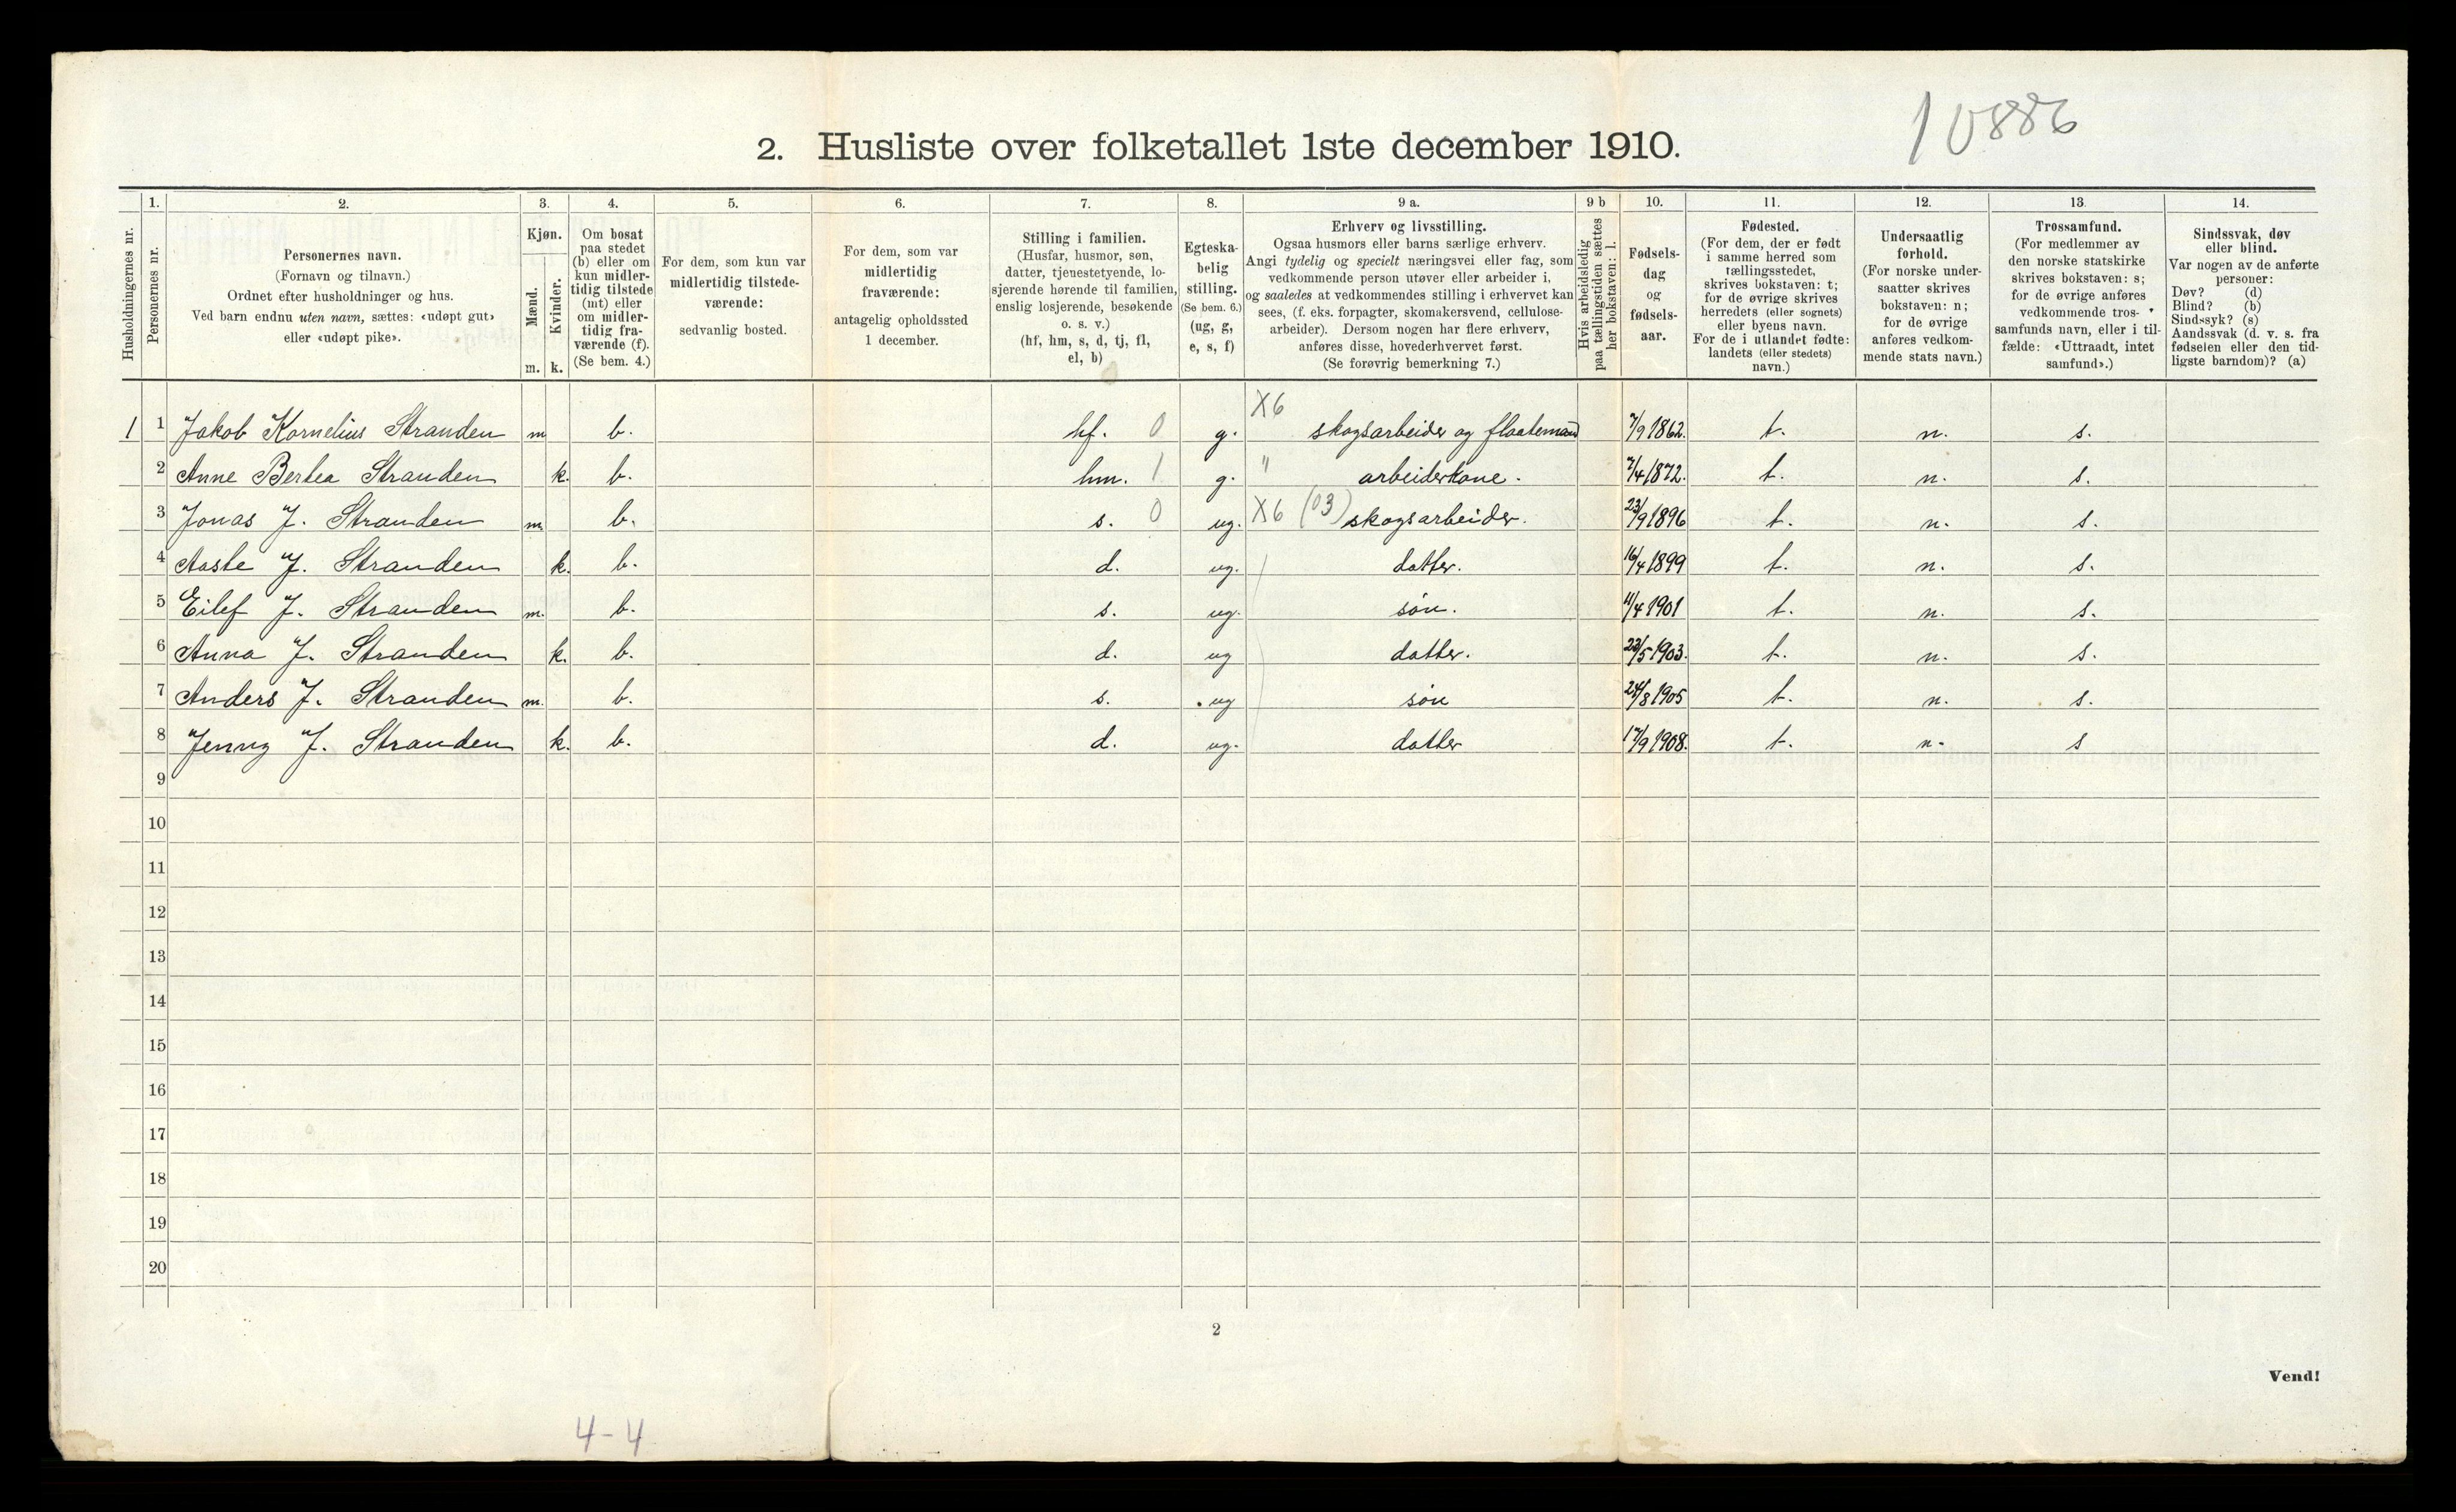 10886
2. Husliste over folketallet 1ste december 1910.
Husholdningernes nr.
1.
Personernes nr.
2.
Personernes navn.
(Fornavn og tilnavn.)
Ordnet efter husholdninger og hus.
Ved barn endnu uten navn, sættes: «udøpt gut»
eller «udøpt pike».
3.
Kjøn.
Mænd.
Kvinder.
m. k.
4.
Om bosat
paa stedet
(b) eller om
kun midler-
tidig tilstede
(mt) eller
om midler-
tidig fra-
værende (f).
(Se bem. 4.)
5.
For dem, som kun var
midlertidig tilstede-
værende:
sedvanlig bosted.
6.
For dem, som var
midlertidig
fraværende:
antagelig opholdssted
1 december.
7.
Stilling i familien.
(Husfar, husmor, søn,
datter, tjenestetyende, lo-
sjerende hørende til familien,
enslig losjerende, besøkende
o. s. v.)
(hf, hm, s, d, tj, fl,
el, b)
8.
Egteska-
belig
stilling.
(Se bem. 6.)
(ug, g,
e, s, f)
9 a.
Erhverv og livsstilling.
Ogsaa husmors eller barns særlige erhverv.
Angi tydelig og specielt næringsvei eller fag, som
vedkommende person utøver eller arbeider i,
og saaledes at vedkommendes stilling i erhvervet kan
sees, (f. eks. forpagter, skomakersvend, cellulose-
arbeider). Dersom nogen har flere erhverv,
anføres disse, hovederhvervet først.
(Se forøvrig bemerkning 7.)
9 b
Hvis arbeidsledig
paa tællingstiden sættes
her bokstaven: l.
10.
Fødsels-
dag
og
fødsels-
aar.
11.
Fødested.
(For dem, der er født
i samme herred som
tællingsstedet,
skrives bokstaven: t;
for de øvrige skrives
herredets (eller sognets)
eller byens navn.
For de i utlandet fødte:
landets (eller stedets)
navn.)
12.
Undersaatlig
forhold.
(For norske under-
saatter skrives
bokstaven: n;
for de øvrige
anføres vedkom-
mende stats navn.)
13.
Trossamfund.
(For medlemmer av
den norske statskirke
skrives bokstaven: s;
for de øvrige anføres
vedkommende tros-
samfunds navn, eller i til-
fælde: «Uttraadt, intet
samfund».)
14.
Sindssvak, døv
eller blind.
Var nogen av de anførte
personer:
Døv? (d)
Blind? (b)
Sindssyk? (s)
Aandssvak (d. v. s. fra
fødselen eller den tid-
ligste barndom)? (a)
1 1 Jakob Kornelius Stranden m b. hf. 0 g. X6 skogsarbeider og fløatemand 7/9 1862. t. n. s.
2 Anne Bertea Stranden k. b. hm. 1 g. " arbeiderkone. 7/4 1872. t. n. s.
3 Jonas J. Stranden m b. s. 0 ug. X6 (03) skogsarbeider. 23/9 1896 t. n. s.
4 Aaste J. Stranden k. b. d. ug. datter. 16/4 1899 t. n. s.
5 Eilef J. Stranden m. b. s. ug. søn. 11/4 1901 t. n. s.
6 Anna J. Stranden k. b. d. ug datter. 23/5 1903. t. n. s.
7 Anders J. Stranden m. b. s. ug søn 24/8 1905 t. n. s.
8 Jenny J. Stranden k. b. d. ug. datter 17/9 1908. t. n. s
9
10
11
12
13
14
15
16
17
18
19
20
2
Vend!
4-4